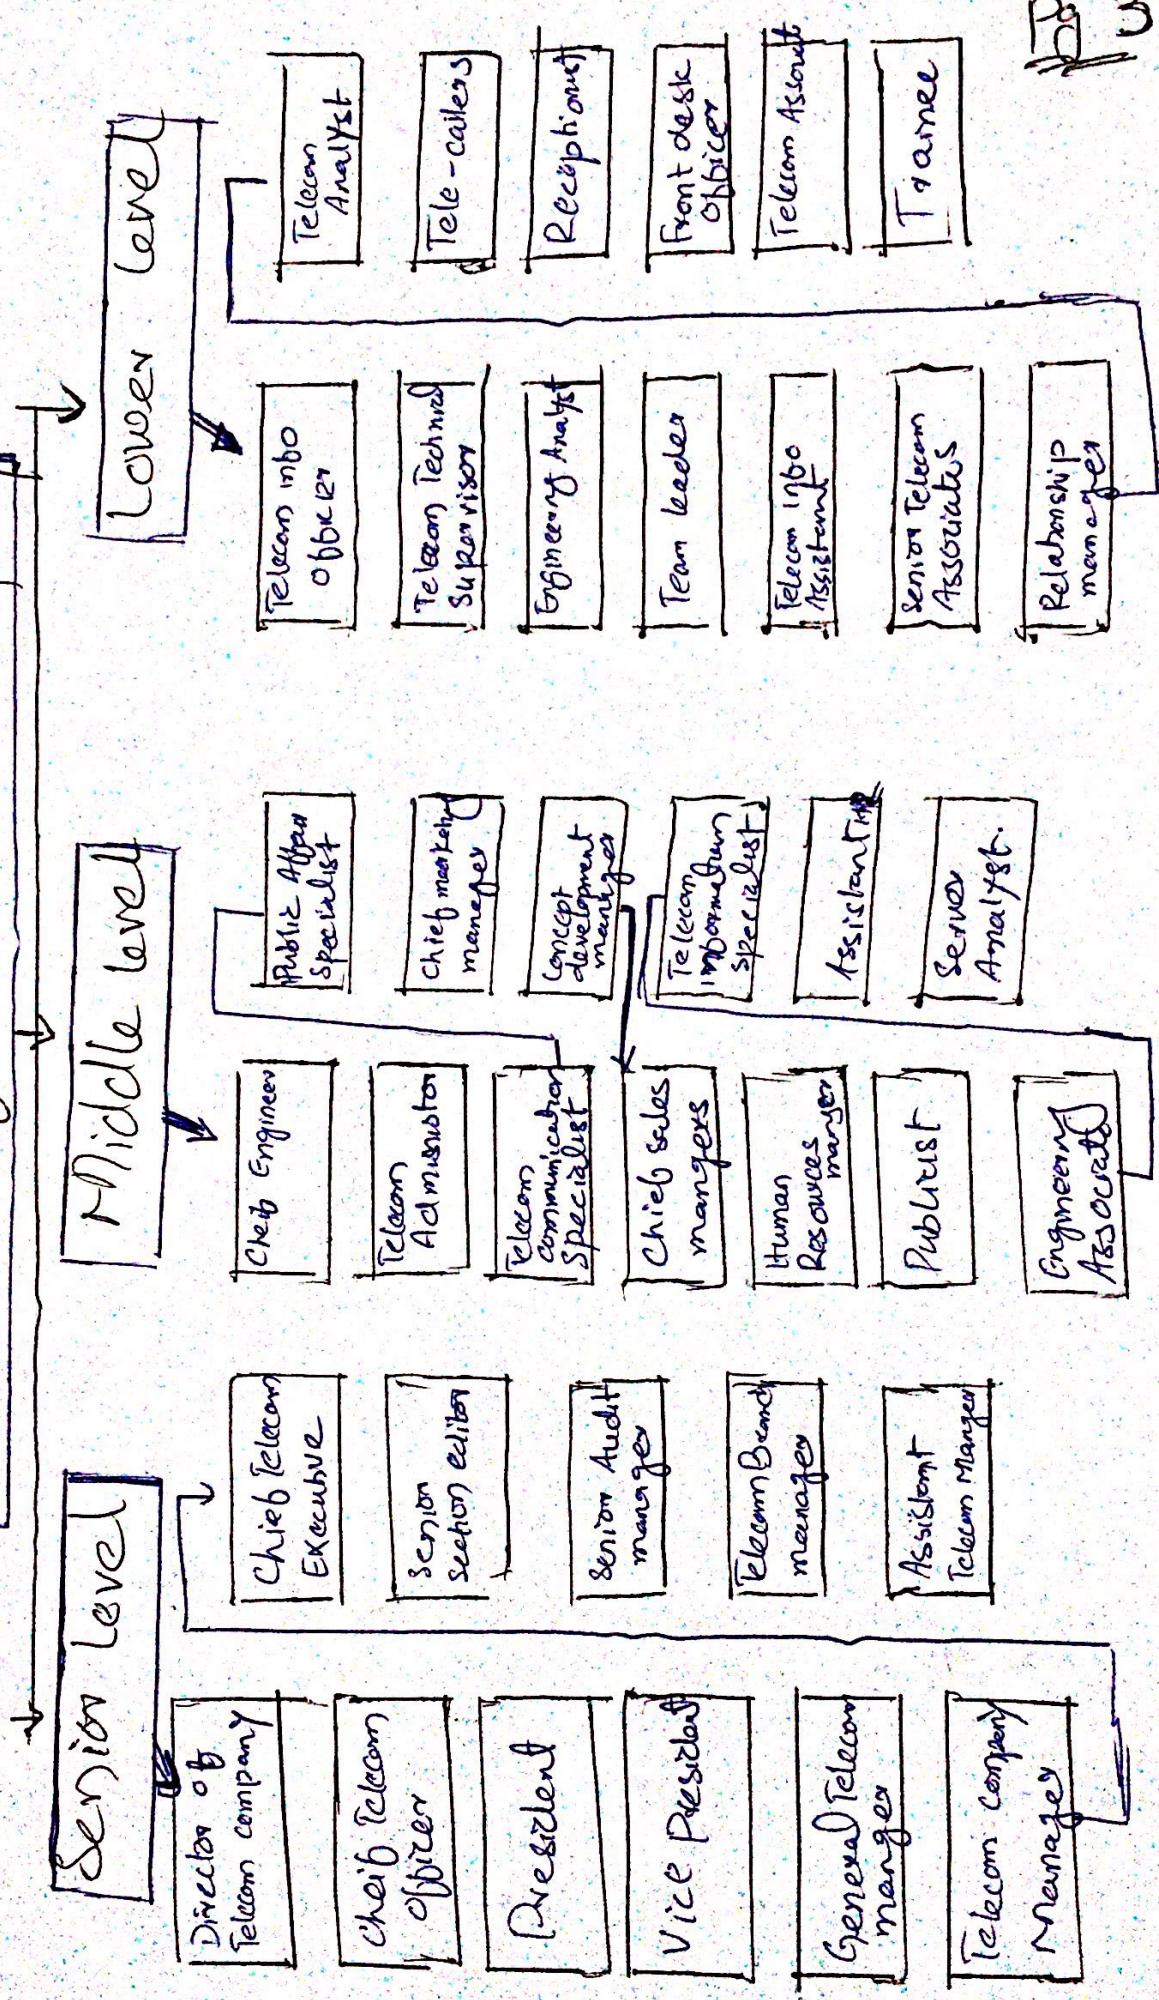 Senior Level
Director of
Telecom company
Cheif Telecom
Officer
President
Vice President
General Telecom
manger
Telecom company
Manager
Chief Telecom
Executive
Senior
section editor
Senior Audit
manager
Telecom Branch
manager
Assistant
Telecom Manger
Middle Level
Cheif Engineer
Telecom
Telecom
communication
Specialist
Chief sales
mangers
Human
Resources
manger
Publicist
Engineering
Public Affair
Specialist
Chief
manager
Concept
development
manager
Telecom
information
specialist
Assistant
Server
Analyst.
Lower Level
Telecom info
Officer
Telecom Technical
Supervisor
Engineering Analyst
Team leader
Telecom Info
Assistant
Senior Telecom
Associates
Relationship
manager
Telecom
Analyst
Tele-callers
Receptionist
Front desk
Officer
Telecom
Trainee